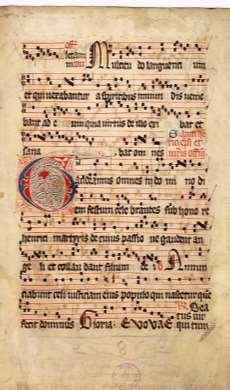 Multitudo languencium
et qui vexabantur a spiritibus inmundis venie
bant ad eum quia virtus de illo exibat et
sanabat omnes
Gaudeamus omnes in domino di
em festum celebrantes sub honore
henrici martyris de cuius passione gaudent an
geli et collaudant filium dei Annun
ciabunt celi iusticiam eius populo qui nascetur que
fecit dominus Gloria Evovae Bea
tus vir qui tim